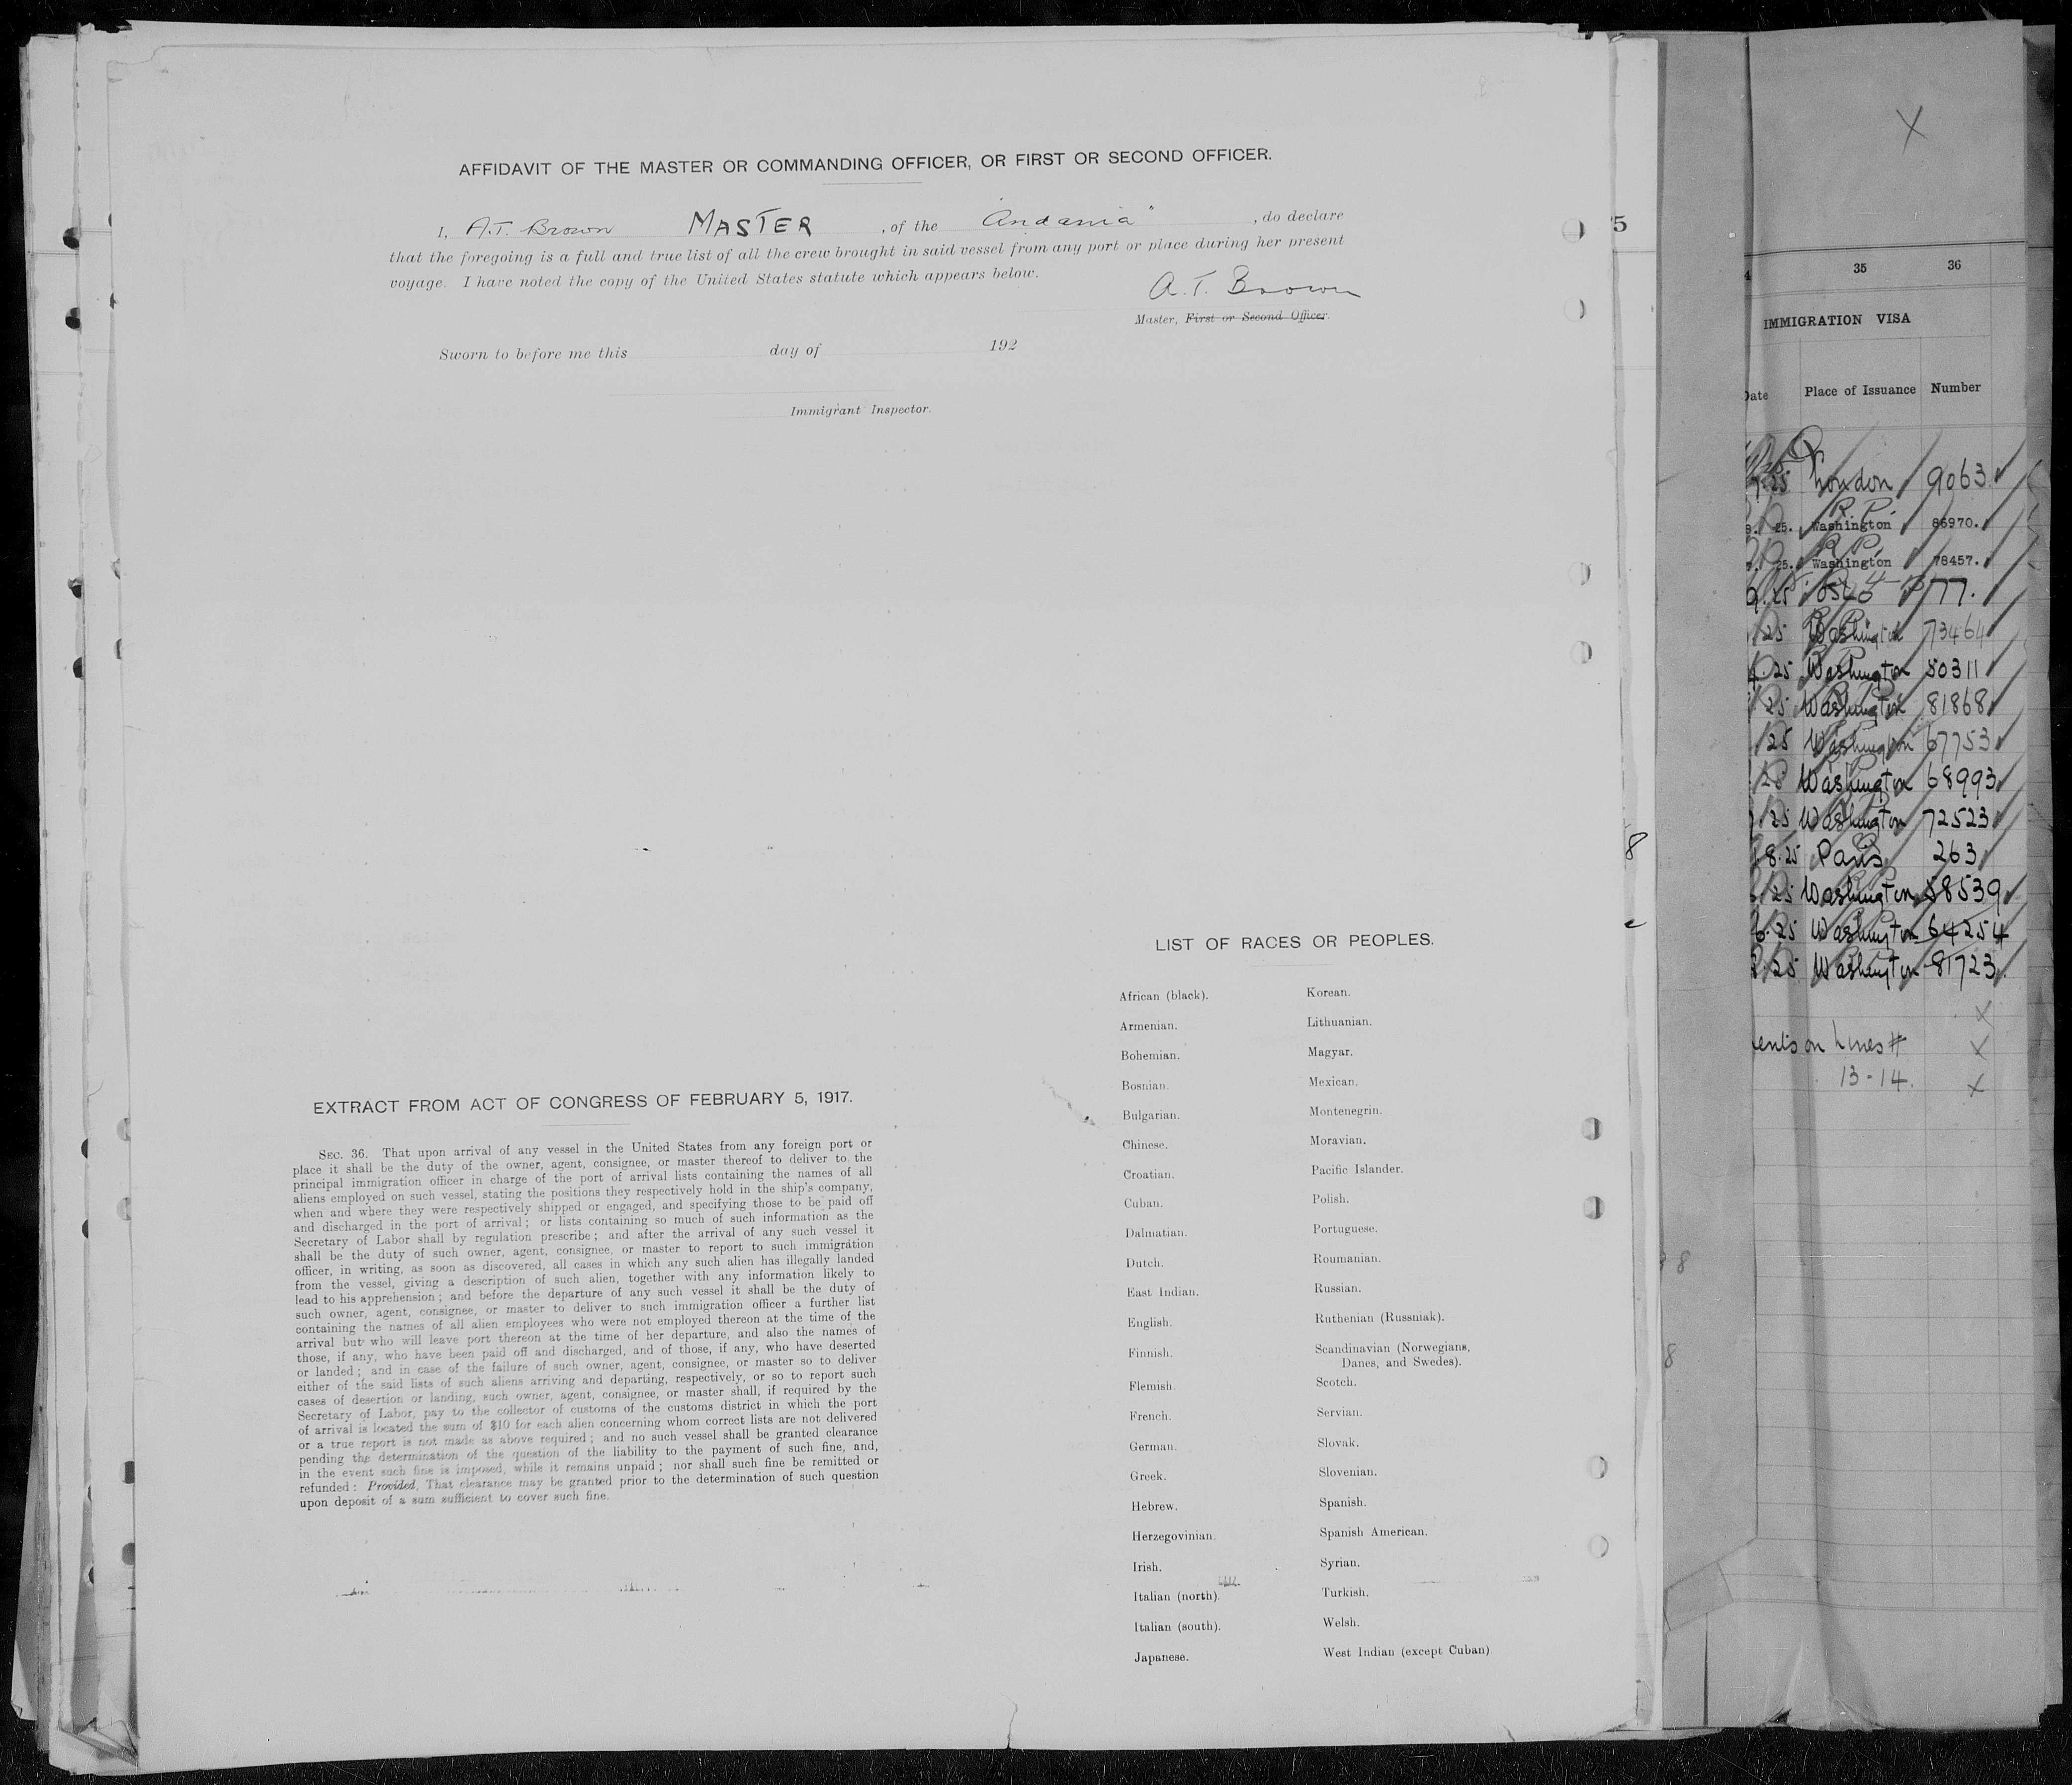 AFFIDAVIT OF THE MASTER OR COMMANDING OFFICER, OR FIRST OR SECOND OFFICER.
I, A.T. Brown MASTER , of the "Andania" , do declare
that the foregoing is a full and true list of all the crew brought in said vessel from any port or place during her present
voyage. I have noted the copy of the United States statute which appears below.
A.T. Brown
Master, First or Second Officer.
Sworn to before me this day of 192
Immigrant Inspector.
EXTRACT FROM ACT OF CONGRESS OF FEBRUARY 5, 1917.
SEC. 36. That upon arrival of any vessel in the United States from any foreign port or
place it shall be the duty of the owner, agent, consignee, or master thereof to deliver to the
principal immigration officer in charge of the port of arrival lists containing the names of all
aliens employed on such vessel, stating the positions they respectively hold in the ship's company,
when and where they were respectively shipped or engaged, and specifying those to be paid off
and discharged in the port of arrival; or lists containing so much of such information as the
Secretary of Labor shall by regulation prescribe; and after the arrival of any such vessel it
shall be the duty of such owner, agent, consignee, or master to report to such immigration
officer, in writing, as soon as discovered, all cases in which any such alien has illegally landed
from the vessel, giving a description of such alien, together with any information likely to
lead to his apprehension; and before the departure of any such vessel it shall be the duty of
such owner, agent, consignee, or master to deliver to such immigration officer a further list
containing the names of all alien employees who were not employed thereon at the time of the
arrival but who will leave port thereon at the time of her departure, and also the names of
those, if any, who have been paid off and discharged, and of those, if any, who have deserted
or landed; and in case of the failure of such owner, agent, consignee, or master so to deliver
either of the said lists of such aliens arriving and departing, respectively, or so to report such
cases of desertion or landing, such owner, agent, consignee, or master shall, if required by the
Secretary of Labor, pay to the collector of customs of the customs district in which the port
of arrival is located the sum of $10 for each alien concerning whom correct lists are not delivered
or a true report is not made as above required; and no such vessel shall be granted clearance
pending the determination of the question of the liability to the payment of such fine, and,
in the event such fine is imposed, while it remains unpaid; nor shall such fine be remitted or
refunded: Provided, That clearance may be granted prior to the determination of such question
upon deposit of a sum sufficient to cover such fine.
LIST OF RACES OR PEOPLES.
African (black).
Armenian.
Bohemian.
Bosnian.
Bulgarian.
Chinese.
Croatian.
Cuban.
Dalmatian.
Dutch.
East Indian.
English.
Finnish.
Flemish.
French.
German.
Greek.
Hebrew.
Herzegovinian.
Irish.
Italian (north).
Italian (south).
Japanese.
Korean.
Lithuanian.
Magyar.
Mexican.
Montenegrin.
Moravian.
Pacific Islander.
Polish.
Portuguese.
Roumanian.
Russian.
Ruthenian (Russniak).
Scandinavian (Norwegians,
Danes, and Swedes).
Scotch.
Servian.
Slovak.
Slovenian.
Spanish.
Spanish American.
Syrian.
Turkish.
Welsh.
West Indian (except Cuban)
5
8
8
8
X
35 36
IMMIGRATION VISA
Date Place of Issuance Number
London 9063
25. Washington 86970.
25. Washington 78457.
25 Oslo 77.
25 Washington 73464
25 Washington 50311
25 Washington 81868
25 Washington 67753
28 Washington 68993
25 Washington 72523
8.25 Paris 263
25 Washington 58539
6.25 Washington 64254
25 Washington 81723
X
on Lines # X
13-14. X